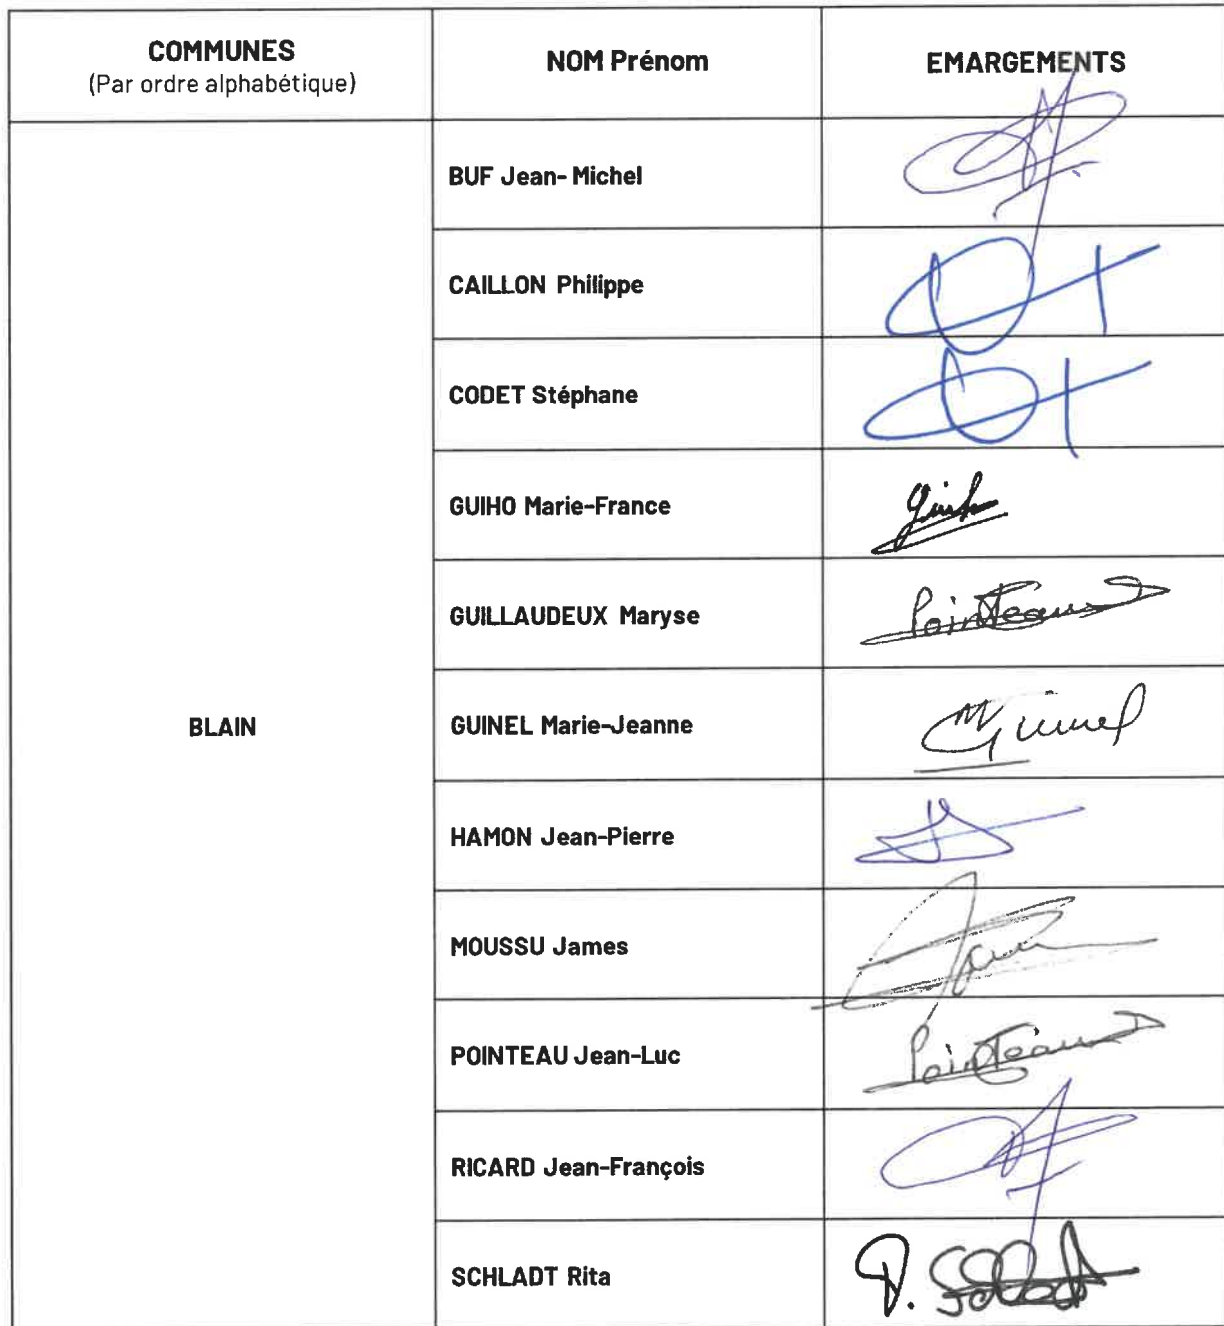 COMMUNES
(Par ordre alphabétique)
NOM Prénom
EMARGEMENTS
BLAIN
BUF Jean- Michel
CAILLON Philippe
CODET Stéphane
GUIHO Marie-France
GUILLAUDEUX Maryse
Pointeau
GUINEL Marie-Jeanne
HAMON Jean-Pierre
MOUSSU James
POINTEAU Jean-Luc
Pointeau
RICARD Jean-François
SCHLADT Rita